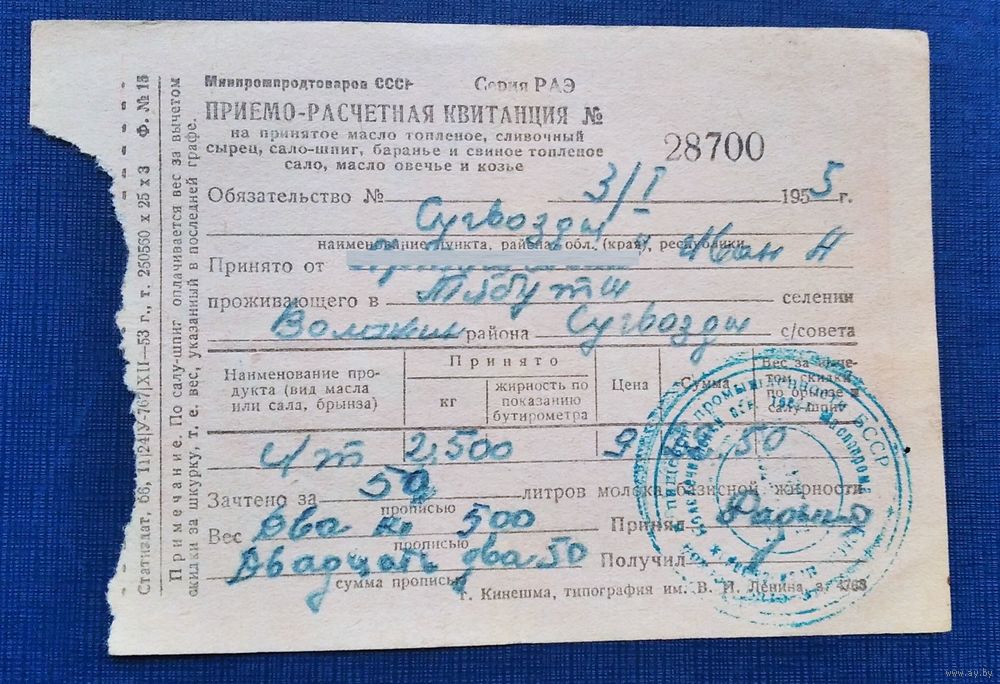 Минпромпродтоваров СССР Серия РАЭ
ПРИЕМО-РАСЧЕТНАЯ КВИТАНЦИЯ №
28700
на принятое масло топленое, сливочный
сырец, сало-шпиг, баранье и свиное топленое
сало, масло овечье и козье
Обязательство № 3/I 1955 г.
Сугвозды
наименование пункта, района, обл. (края), республики
Принято от Иван Н
проживающего в селении
Воложин района Сугвозды с/совета
Наименование продукта (вид масла или сала, брынза)
Принято
кг
жирность по показанию бутирометра
Цена
Сумма
Вес за вычетом скидки по брынзе и салу-шпиг
2,500 9 22.50
Зачтено за 50 литров молока базисной жирности
прописью
Вес Два кг 500 Принял
прописью
Двадцать два 50 Получил
сумма прописью
г. Кинешма, типография им. В. И. Ленина, з. 4768
Примечание. По салу-шпиг оплачивается вес за вычетом
скидки за шкурку, т. е. вес, указанный в последней графе.
Статиздат, 56, 11|24|У-767|XII—53 г., т. 250560 х 25 х 3 Ф. № 13
www.ay.by